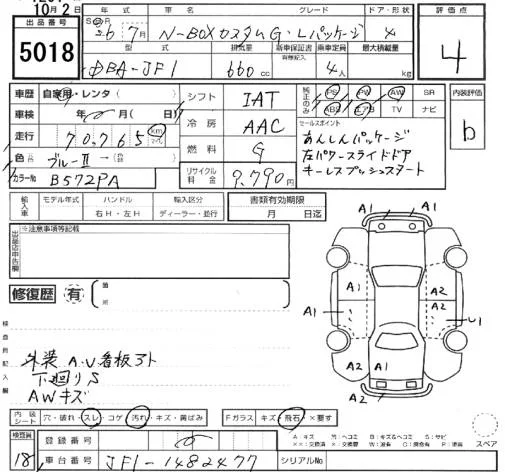 10月2日
出品番号 5018
年式 車名 グレード ドア・形状
26年 7月 N-BOXカスタムG・Lパッケージ 4
型式 排気量 新車保証書 有無記入 乗車定員 最大積載量
DBA-JF1 660cc 4人 kg
評価点
4
車歴 自家用・レンタ( )
車検 年 月( 日)
走行 70,765 km マイル
色 ブルーⅡ
カラーNo B572PA
シフト IAT
冷房 AAC
燃料 G
リサイクル料金 9,790円
純正のみ PS PW AW SR
ABS エアB TV ナビ
セールスポイント
あんしんパッケージ
左パワースライドドア
キーレスプッシュスタート
内装評価
b
輸入車 モデル年式 ハンドル 輸入区分
右H・左H ディーラー・並行
書類有効期限
月 日迄
出品店申告欄 ※注意事項等記載
修復歴 有 箇所
検査員記入欄
外装A・U看板アト
下廻りS
AWキズ
A1 A1
A1 A2 A2 U1
A2 A1 A2
A2 A2
内装シート 穴・破れ・スレ・コゲ・汚れ・キズ・黄ばみ
Fガラス キズ・飛石・×要す
検査員 18
登録番号
車台番号 JF1-1482477
シリアルNo
A:キズ
スペア